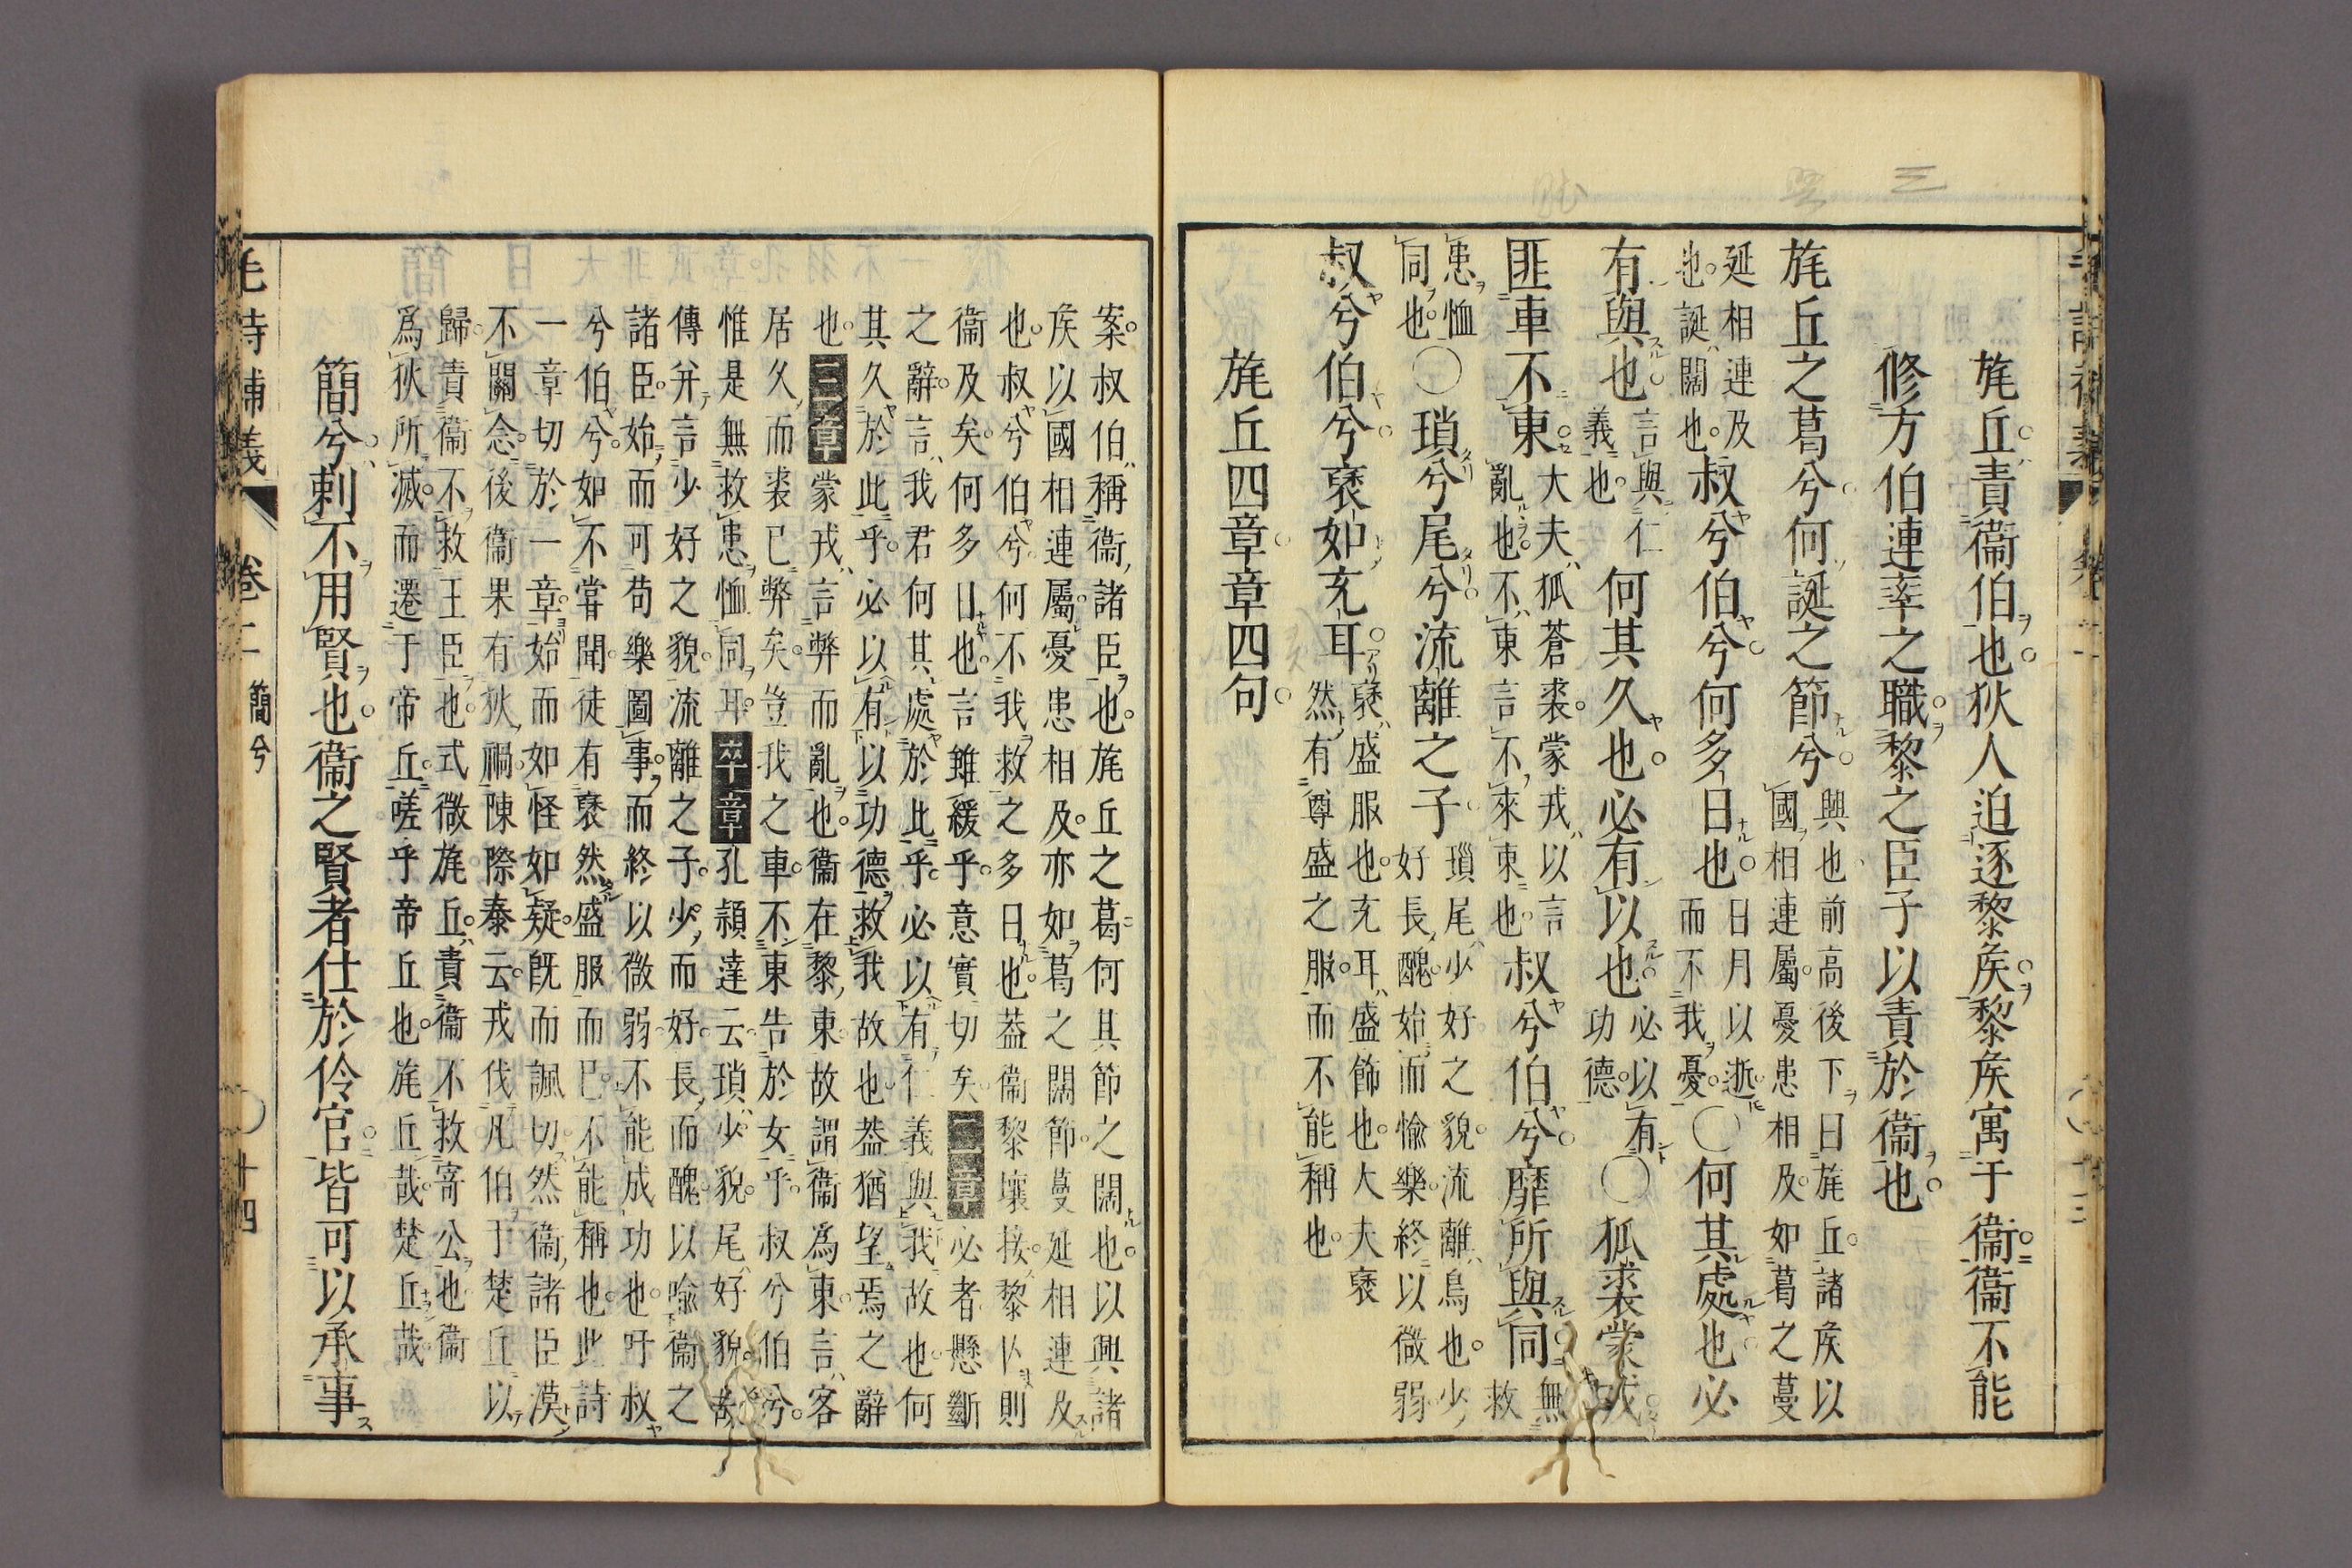 旄丘責衞伯也狄人迫逐黎矦黎矦寓于衞衞不能
修方伯連率之職黎之臣子以責於衞也
旄丘之葛兮何誕之節兮
興也前高後下曰旄丘諸矦以
國相連屬憂患相及如葛之蔓
延相連及
也誕闊也
叔兮伯兮何多日也
日月以逝
而不我憂
〇何其處也必
有與也
言與仁
義也
何其久也必有以也
必以有
功德
〇狐裘蒙戎
匪車不東
大夫狐蒼裘蒙戎以言
亂也不東言不來東也
叔兮伯兮靡所與同
無
救
患恤
同也
〇瑣兮尾兮流離之子
瑣尾少好之貌流離鳥也少
好長醜始而愉樂終以微弱
叔兮伯兮褎如充耳
褎盛服也充耳盛飾也大夫褎
然有尊盛之服而不能稱也
旄丘四章章四句
案叔伯稱衞諸臣也旄丘之葛何其節之闊也以興諸
矦以國相連屬憂患相及亦如葛之闊節蔓延相連及
也叔兮伯兮何不我救之多日也葢衞黎壤按黎仆則
衞及矣何多日也言雖緩乎意實切矣二章必者懸斷
之辭言我君何其處於此乎必以有仁義與我故也何
其久於此乎必以有以功德救我故也葢猶望焉之辭
也三章蒙戎言弊而亂也衞在黎東故謂衞爲東言客
居久而裘已弊矣豈我之車不東告於女乎叔兮伯兮
惟是無救患恤同耳卒章孔頴達云瑣少貌尾好貌故
傳幷言少好之貌流離之子少而好長而醜以喩衞之
諸臣始而可苟樂圖事而終以微弱不能成功也吁叔
兮伯兮如不甞聞徒有褎然盛服而已不能稱也此詩
一章切於一章始而如怪如疑旣而諷切然衞諸臣漠
不關念後衞果有狄禍陳際泰云戎伐凡伯于楚丘以
歸責衞不救王臣也式微旄丘責衞不救寄公也衞
爲狄所滅而遷于帝丘嗟乎帝丘也旄丘哉楚丘哉
簡兮刺不用賢也衞之賢者仕於伶官皆可以承事
毛詩補義 卷二 簡兮 十四